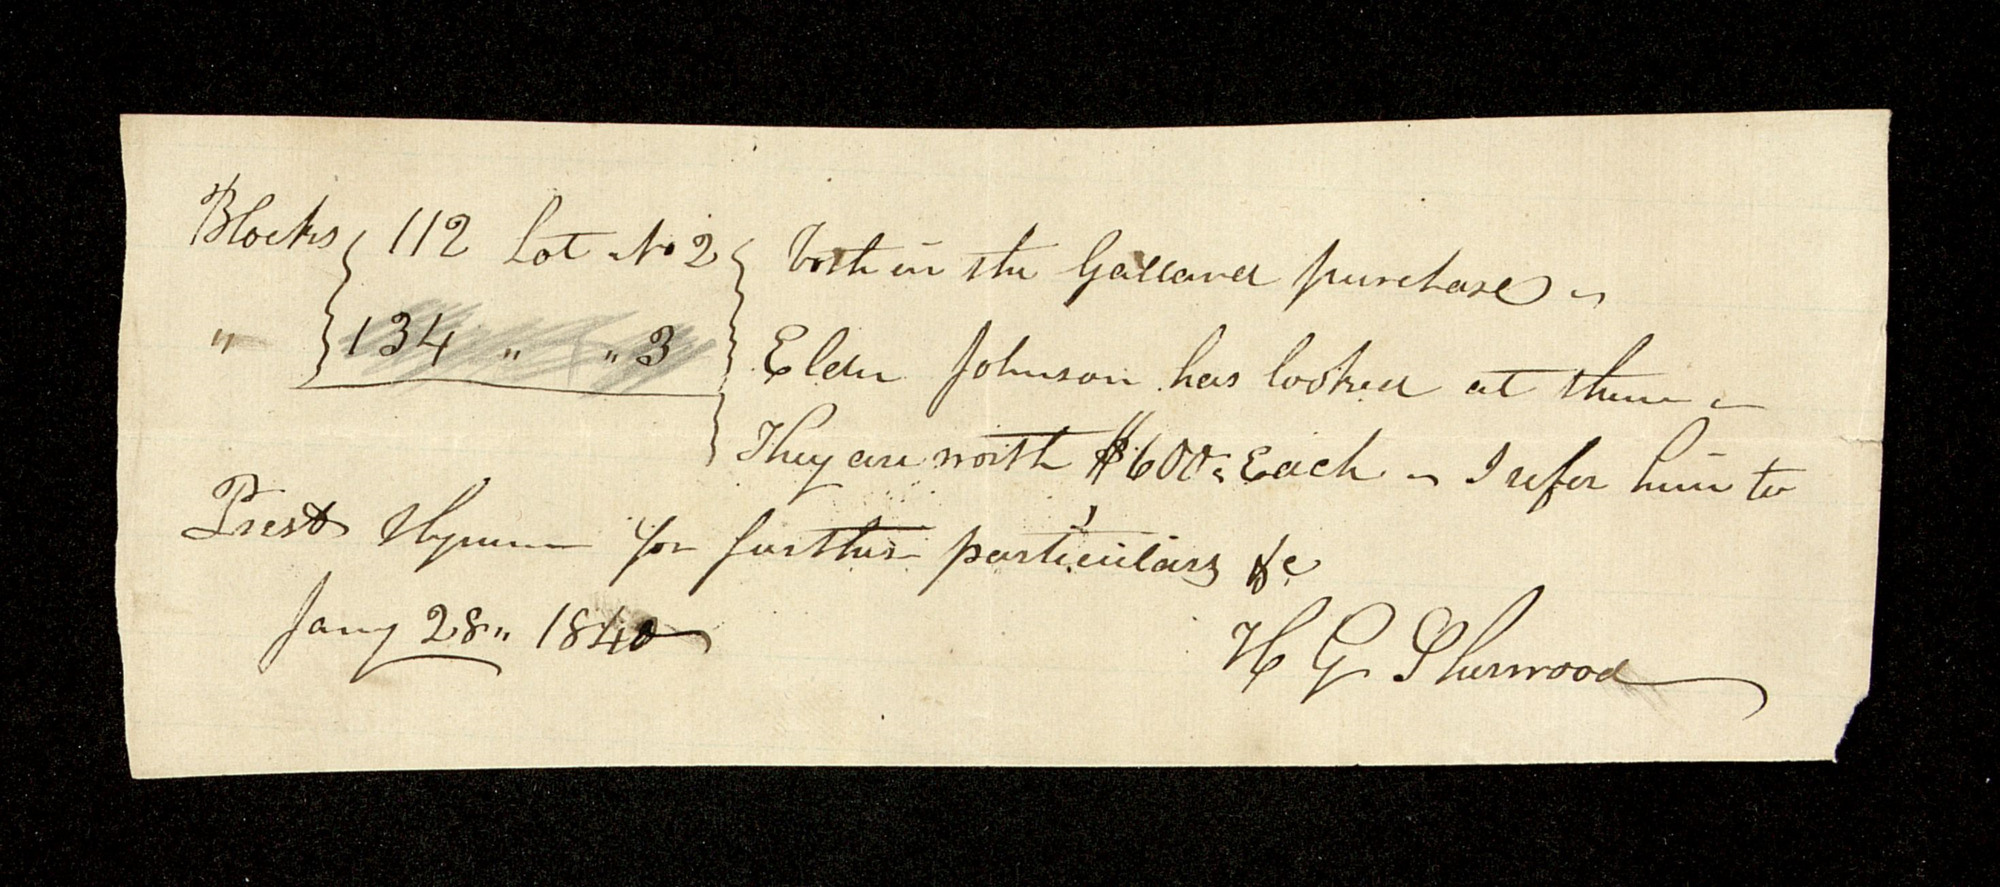 Blocks { 112 Lot No 2 } both in the Galland purchase –
" { 134 " " 3 } Elder Johnson has looked at them –
They are worth $600: Each – I refer him to
Prest Hyrum for further particulars &c
Jany 28" 1840
H G Sherwood